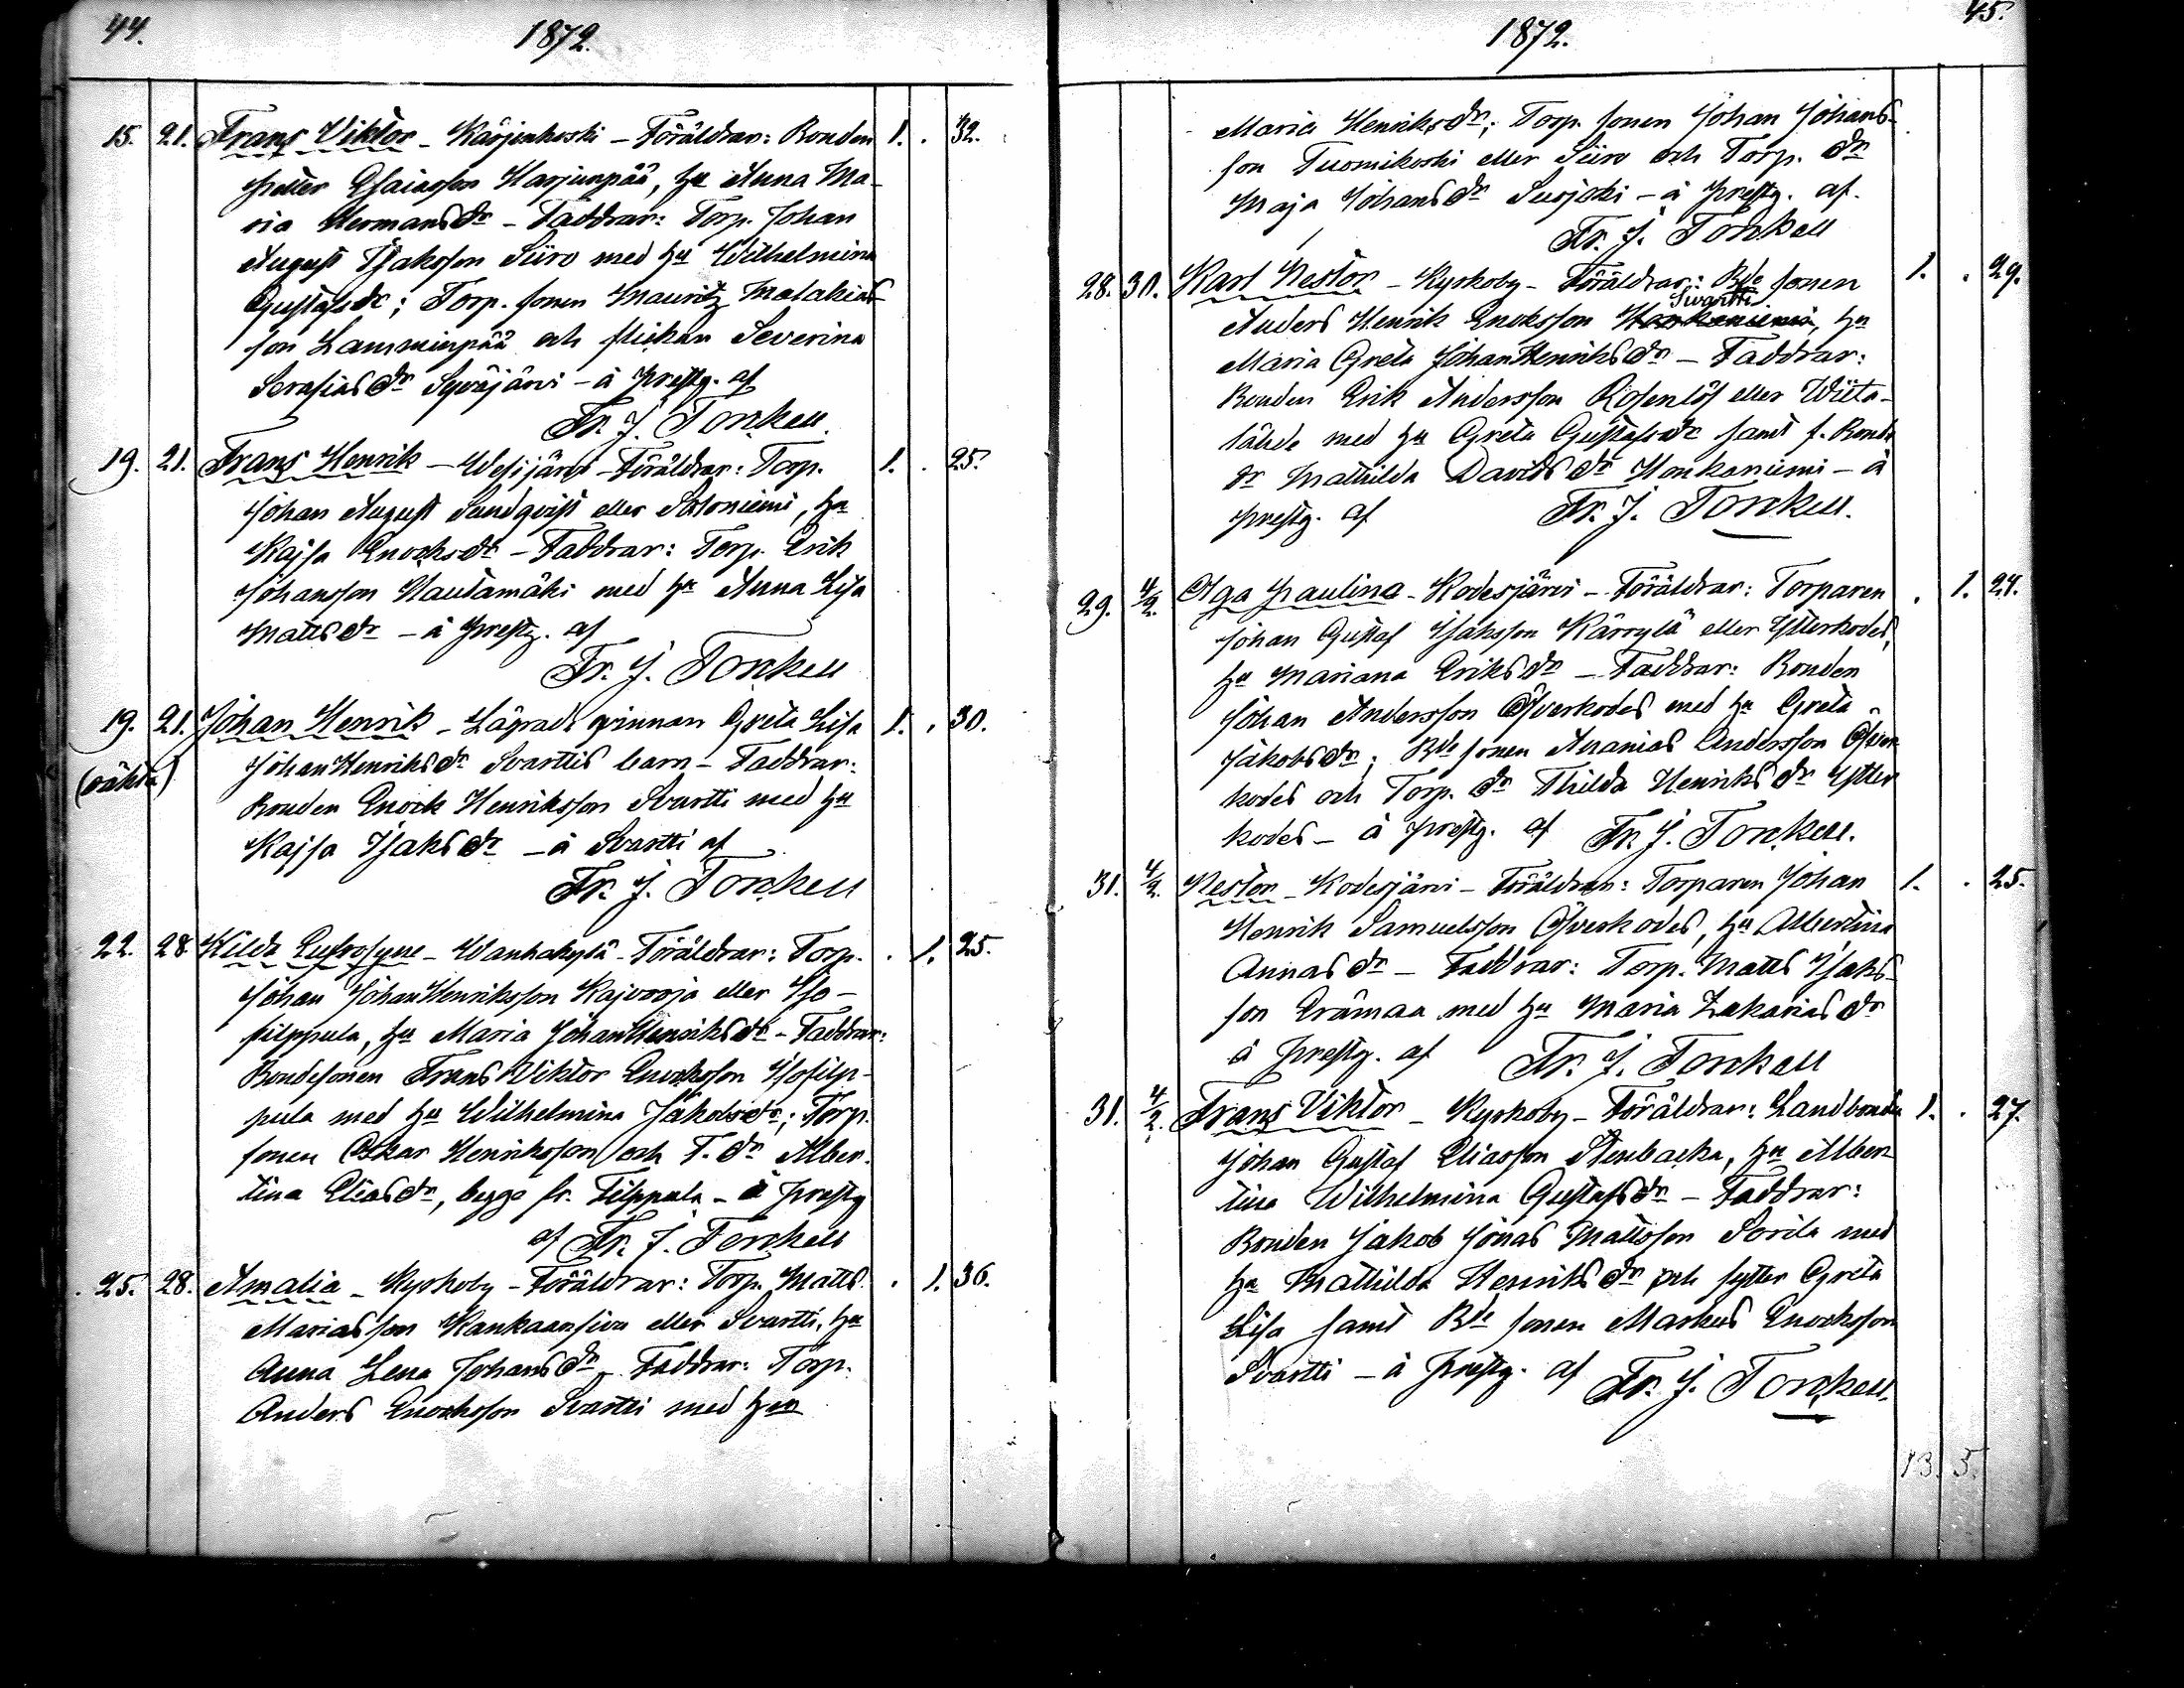 44.
1872.
15. 21. Frans Viktor - Kärjenkoski - Föräldrar: Bonden 1. . 32.
Petter Esaiasson Harjunpää, hu Anna Ma-
ria Hermansdr - Faddrar: Torp. Johan
August Isaksson Siiro med hu Wilhelmina
Gustafsdr; Torp. sonen Mauritz Malakias-
son Lamminpää och flickan Severina
Serafiasdr Syväjärvi - å prestg. af
Fr. J. Tonkell.
19. 21. Frans Henrik - Wesijärvi - Föräldrar: Torp. 1. . 25.
Johan August Sandqvist eller Saloniemi, hu
Kajsa Enochsdr - Faddrar: Torp. Erik
Johansson Hautamäki med hu Anna Lisa
Mattsdr - å prestg. af
Fr. J. Tonkell
19. 21. Johan Henrik - Lägrade qvinnan Greta Lisa 1. . 30.
(oäkta) Johan Henriksdr Svarttis barn - Faddrar:
Bonden Enock Henriksson Svartti med hu
Kajsa Isaksdr - å Svartti af
Fr. J. Tonkell
22. 28. Hilda Eufrosyne - Wanhakylä - Föräldrar: Torp. . 1. 25.
Johan Johan Henriksson Rajvooja eller Iso-
filppula, hu Maria Johan Henriksdr - Faddrar:
Bondesonen Frans Viktor Enocksson Isofilp-
pula med hu Wilhelmina Jakobsdr; Torp.
sonen Oskar Henriksson och T. dr Alber-
tina Eliasdr, begge fr. Filppula - å prestg
af Fr. J. Tonkell
25. 28. Amalia - Kyrkoby - Föräldrar: Torp. Matts . 1. 36.
Mariasson Kankaansivu eller Svartti, hu
Anna Lena Johansdr - Faddrar: Torp.
Anders Enocksson Svartti med hu
45.
1872.
Maria Henriksdr; Torp. sonen Johan Johans-
son Tuomikoski eller Siiro och Torp. dr
Maja Johansdr Susijoki - å prestg. af.
Fr. J. Tonkell
28. 30. Karl Nestor - Kyrkoby - Föräldrar: Bde sonen 1. . 29.
Svartti
Anders Henrik Enoksson Honkaniemi, hu
Maria Greta Johan Henriksdr - Faddrar:
Bonden Erik Andersson Rosenlöf eller Wiita-
lähde med hu Greta Gustafsdr samt f. Bonde
dr Mathilda Davidsdr Honkaniemi - å
prestg. af Fr. J. Tonkell.
29. 4/2. Olga Paulina - Kodesjärvi - Föräldrar: Torparen . 1. 24.
Johan Gustaf Isaksson Kärrylä eller Ytterkodes,
hu Mariana Eriksdr - Faddrar: Bonden
Johan Andersson Öfverkodes med hu Greta
Jakobsdr; Bde sonen Ananias Andersson Öfver-
kodes och Torp. dr Thilda Henriksdr Ytter
kodes - å prestg. af Fr. J. Tonkell.
31. 4/2. Nestor - Kodesjärvi - Föräldrar: Torparen Johan 1. . 25.
Henrik Samuelsson Öfverkodes, hu Albertina
Annasdr - Faddrar: Torp. Matts Isaks-
son Erämaa med hu Maria Zakariasdr
å prestg. af Fr. J. Tonkell
31. 4/2. Frans Viktor - Kyrkoby - Föräldrar: Landbonde 1. . 27.
Johan Gustaf Eliasson Stenbacka, hu Alber-
tina Wilhelmina Gustafsdr - Faddrar:
Bonden Jakob Jonas Mattsson Sorila med
hu Mathilda Henriksdr och syster Greta
Lisa samt Bde sonen Markus Enocksson
Svartti - å prestg. af Fr. J. Tonkell.
13. 5.